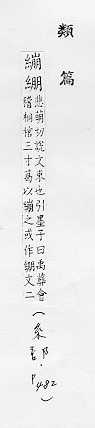 類篇
繃繃悲萌切說文束也引墨子曰禹葬會
稽桐棺三寸葛以繃之或作繃文二
P482